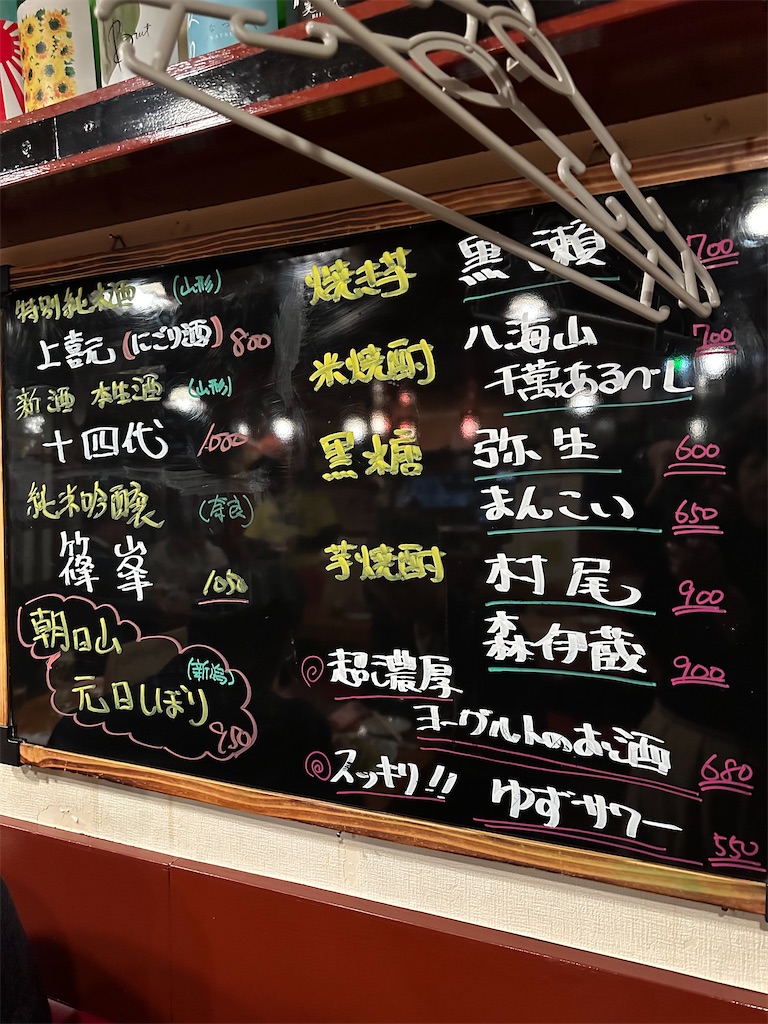 Brut
特別純米酒 (山形)
上喜元 (にごり酒) 800
新酒 本生酒 (山形)
十四代 1000
純米吟醸 (奈良)
篠峯 1050
朝日山
(新潟)
元日しぼり 950
焼き芋 黒瀬 700
米焼酎 八海山 700
千萬あるべし
黒糖 弥生 600
まんこい 650
芋焼酎 村尾 900
森伊蔵 900
超濃厚
ヨーグルトのお酒 680
スッキリ!! ゆずサワー 550